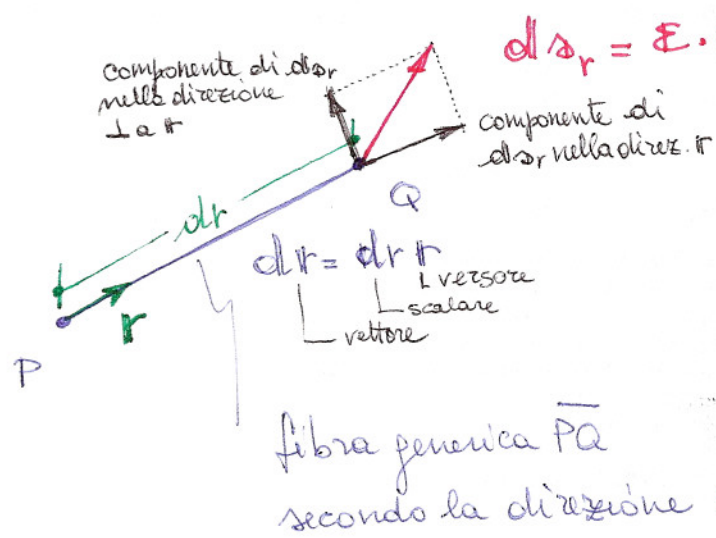 componente di dsr
nella direzione
⊥ a r
dsr = E.
componente di
dsr nella direz. r
Q
dr
dr = dr r
versore
scalare
vettore
r
P
fibra generica PQ
secondo la direzione